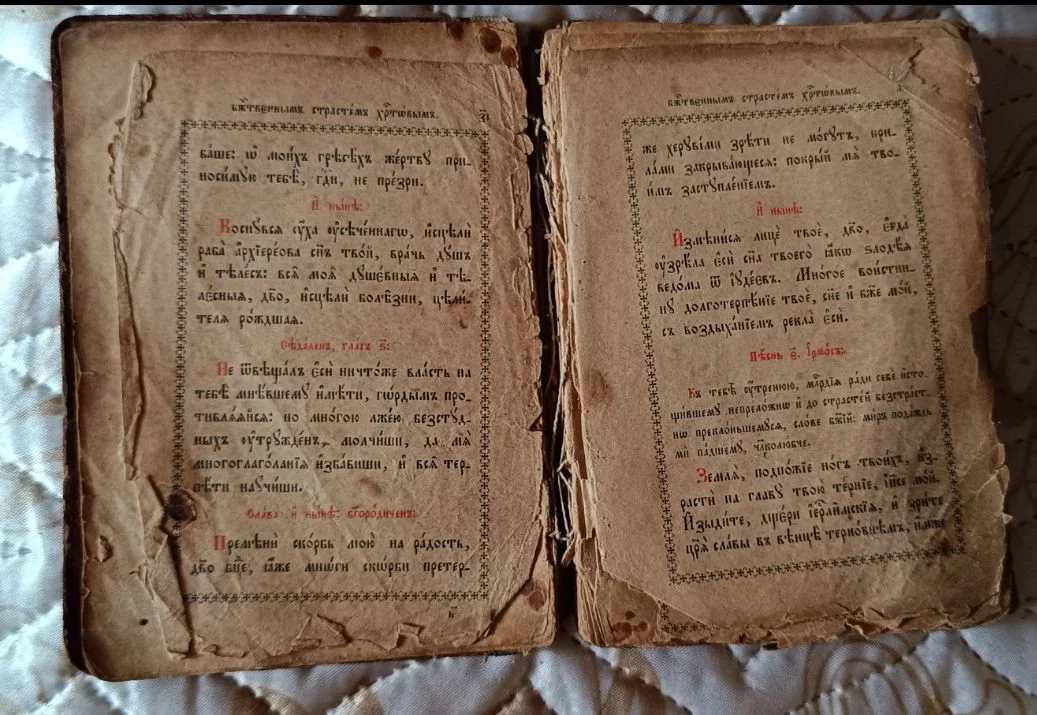 бжⷭ҇твєннымъ страстє́мъ хрⷭ҇тѡ́вымъ.
ва́шє: ѡ҆ мои́хъ грѣсѣ́хъ жє́ртву при-
носи́мую тєбѣ̀, гдⷭ҇и, нє прє́зри.
И҆ ны́нѣ:
Косну́вся ᲂу҆́ха ᲂу҆сѣчє́ннагѡ, и҆сцѣлѝ
раба̀ а҆рхїєрє́ова сн҃ъ тво́й, врачь ду́шъ
и҆ тѣлє́съ: вся̑ моя̑ душє́вныя и҆ тѣ-
лє́сныя, дв҃о, и҆сцѣлѝ болѣ̑зни, цѣли́-
тєля ро́ждшая.
Сѣда́лєнъ, гласъ ѕ҃:
Нє ѿвѣща́лъ є҆сѝ ничто́жє вла́сть на
тєбѣ̀ мнѣ́вшєму и҆мѣ́ти, гѡ́рдымъ про-
тивля́яйся: но мно́гою лжє́ю, бєзсту́д-
ныхъ ᲂу҆тружде́нъ, молчи́ши, да мя̀
многоглаго́ланія и҆зба́виши, и҆ вся̑ тєр-
пѣ́ти научи́ши.
Сла́ва и҆ ны́нѣ: бг҃оро́дичєнъ:
Прємѣнѝ ско́рбь мою̀ на ра́дость,
дв҃о бц҃є, ꙗ҆́жє мнѡ́ги скѡ́рби прєтєр-
и҃
бжⷭ҇твєннымъ страстє́мъ хрⷭ҇тѡ́вымъ.
жє хєруві́ми зрѣ́ти нє мо́гутъ, кри-
ла́ми закрыва́ющєся: покры́й мя̀ тво-
и́мъ заступлє́нїємъ.
И҆ ны́нѣ:
И҆змѣни́ся лицѐ твоѐ, дв҃о, є҆гда̀
ᲂу҆зрѣ́ла є҆сѝ сн҃а твоєго̀ ꙗ҆́кѡ ѕлодѣ́я
вєдо́ма ѿ і҆удє́євъ. Мно́гоє вои́стин-
ну долготєрпѣ́нїє твоѐ, сн҃є и҆ бж҃є мо́й,
съ воздыха́нїємъ рєкла̀ є҆сѝ.
Пѣ́снь є҃. І҆рмо́съ:
Къ тєбѣ̀ ᲂу҆́трєнюю, млⷭ҇рдїя ра́ди сєбѐ и҆сто-
щи́вшєму нєпрєло́жнѡ и҆ до страстє́й бєзстра́ст-
нѡ прєкло́ньшємуся, сло́вє бж҃їй: ми́ръ пода́ждь
ми па́дшєму, чл҃вѣколю́бчє.
Зємля̀, подно́жїє но́гъ твои́хъ, и҆з-
растѝ на главу̀ твою̀ тє́рнїє, і҆и҃сє мо́й.
И҆зыди́тє, дщє́ри і҆єрⷭ҇ли́мскїя, и҆ зри́тє
цр҃я̀ сла́вы въ вѣнцѣ̀ тєрно́внѣмъ, и҆́мжє